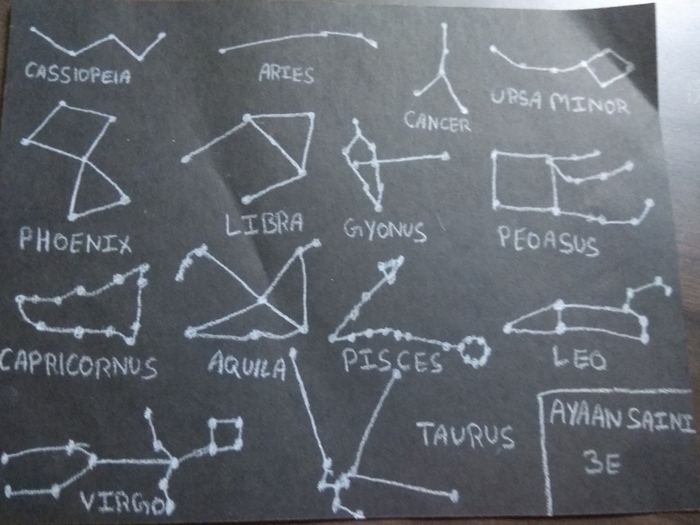 CASSIOPEIA
ARIES
CANCER
URSA MINOR
PHOENIX
LIBRA
GYONUS
PEOASUS
CAPRICORNUS
AQUILA
PISCES
LEO
VIRGO
TAURUS
AYAAN SAINI
3E